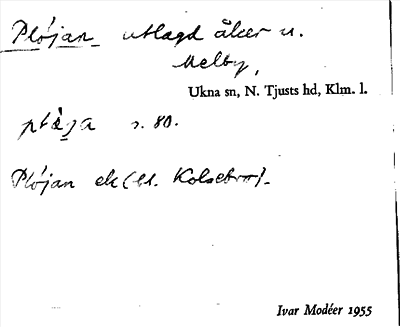 Plöjan utlagd åker u.
Melby,
Ukna sn, N. Tjusts hd, Klm. l.
s. 80.
Plöjan ek (bl. Kolsebro).
Ivar Modéer 1955